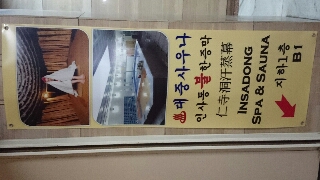 ♨대중사우나
인사동불한증막
仁寺洞汗蒸幕
INSADONG
SPA & SAUNA
지하1층
B1